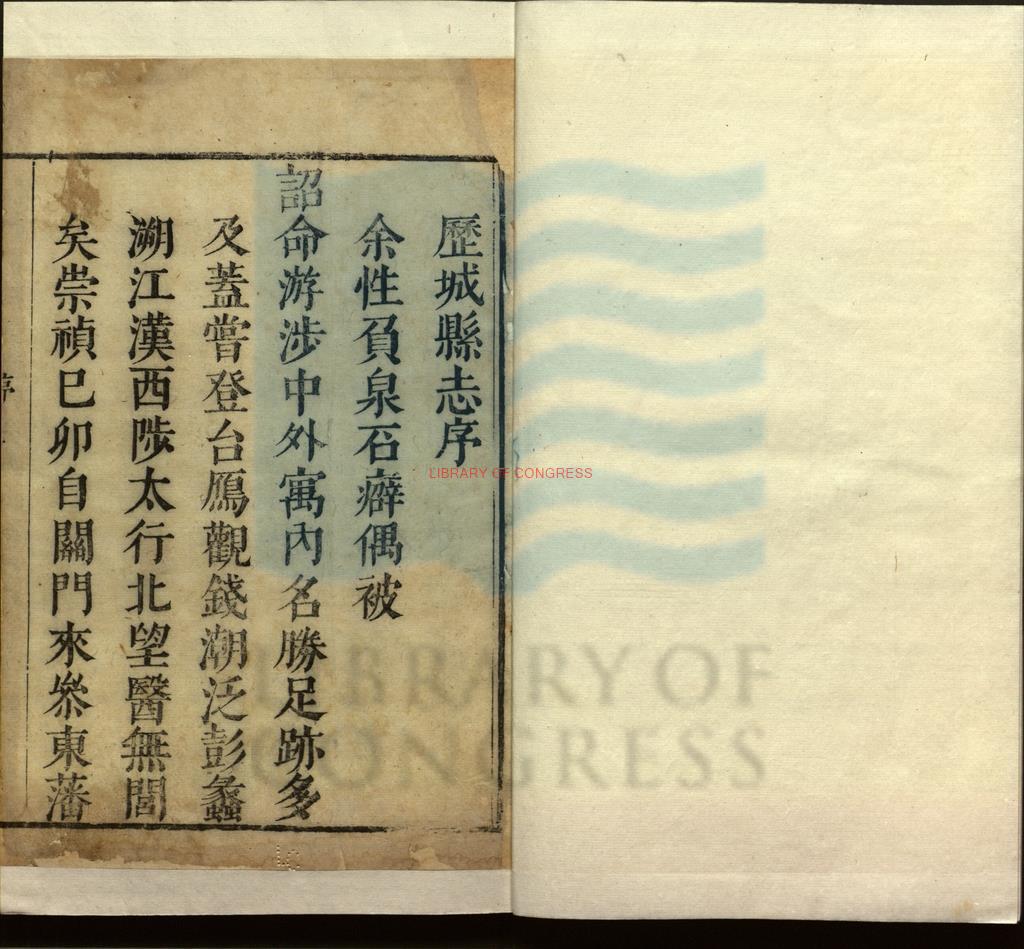 歷城縣志序
余性負泉石癖偶被
詔命游涉中外寓內名勝足跡多
及蓋嘗登台鴈觀錢潮泛彭蠡
溯江漢西陟太行北望醫無閭
矣崇禎巳卯自關門來叅東藩
LIBRARY OF CONGRESS
LIBRARY OF
CONGRESS